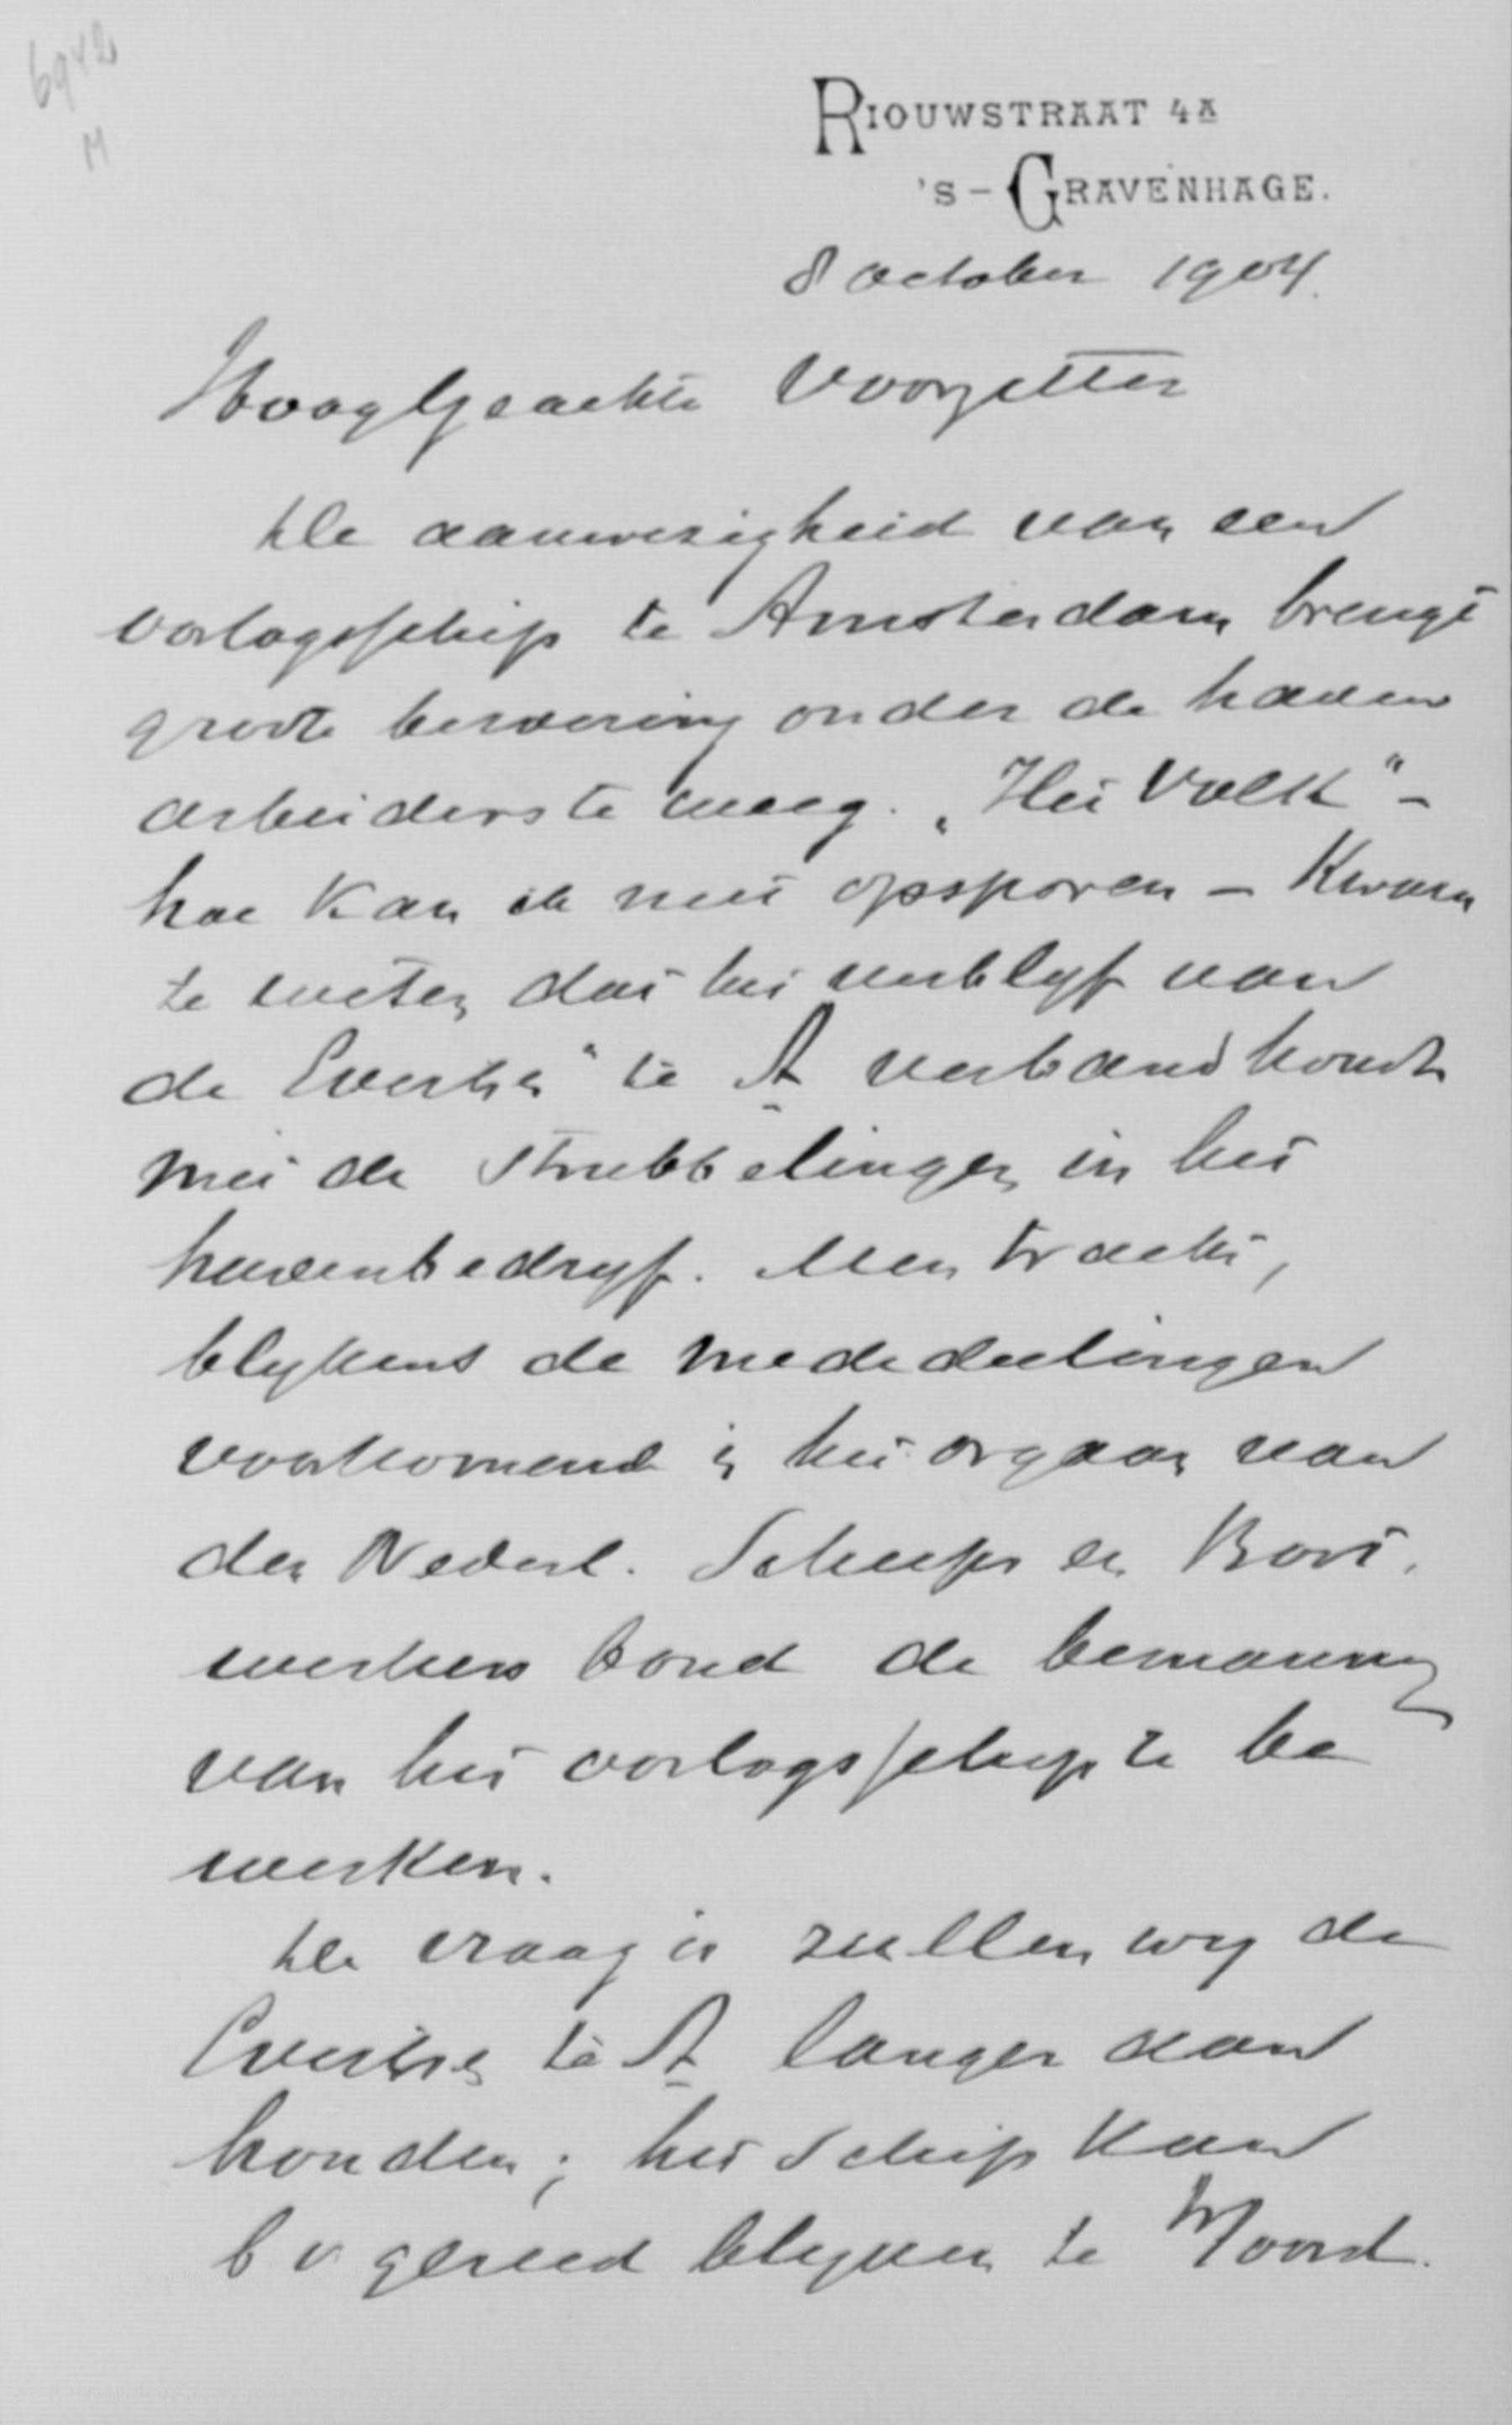 6942
M
RIOUWSTRAAT 4A
'S-GRAVENHAGE.
8 October 1904.
Hooggeachte Voorzitter
De aanwezigheid van een
oorlogsschip te Amsterdam brengt
groote beroering onder de haven
arbeiders te weeg. „Het Volk" -
hoe kan ik niet opsporen - kwam
te weten dat het verblijf van
de Evertsen" te A verband houdt
met de strubbelingen in het
havenbedrijf. Men tracht,
blijkens de mededeelingen
voorkomend in het orgaan van
den Nederl. Scheeps en Boot.
werkers bond de bemanning
van het oorlogsschip te be
werken.
De vraag is zullen wij de
Evertsen te A langer aan
houden; het schip kan
b v gereed blijven te Noord.